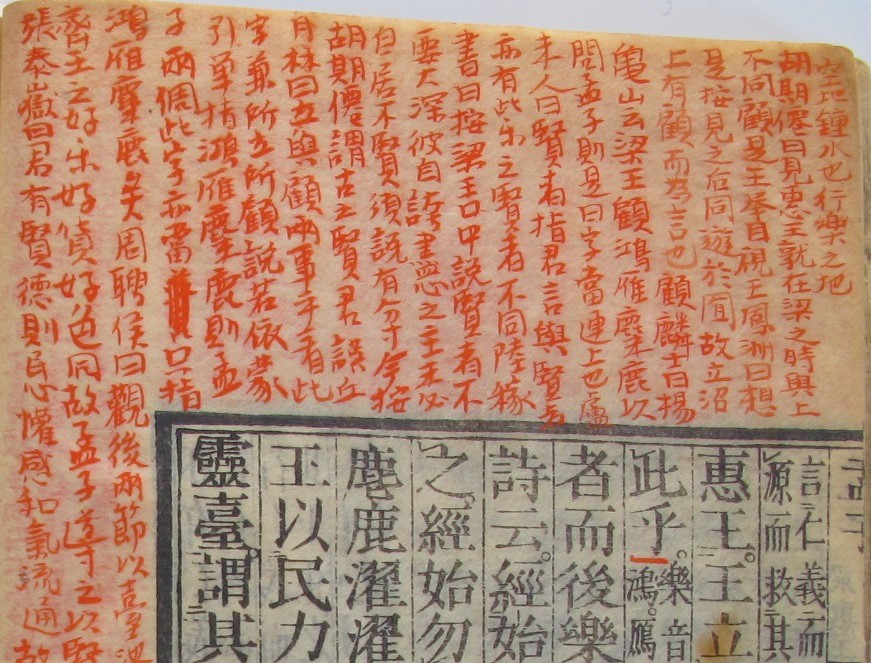 鍾水也行樂之地
胡期僊曰見惠王就在梁之時與上
不同顧是王舉目視王鳳洲曰想
是按見之后同遊於囿故立沼
上有顧而為言也顧麟士曰楊
龜山云梁王顧鴻雁麋鹿以
問孟子則是曰字當連上也盧
未人曰賢者指君言與賢者
亦有此樂之賢者不同陸稼
書曰按梁王口中說賢者不
要太深彼自誇盡心之主未必
自居不賢須說有分寸今按
胡期僊謂古之賢君誤丘
月林曰立與顧兩事平看此
字兼所立所顧說若依蒙
引單指鴻雁麋鹿則孟
子兩個此字亦當只指
鴻雁麋鹿矣周聘侯曰觀後兩節以臺
齊王之好樂好貨好色同故孟子導之以賢
張泰嶽曰君有賢德則民心懽感和氣流通故
孟子
言仁義而
源而救其
惠王。王立
此乎。樂音
鴻。鴈
者而後樂
詩云。經始
之。經始勿
麀鹿濯濯
王以民力
靈臺。謂其